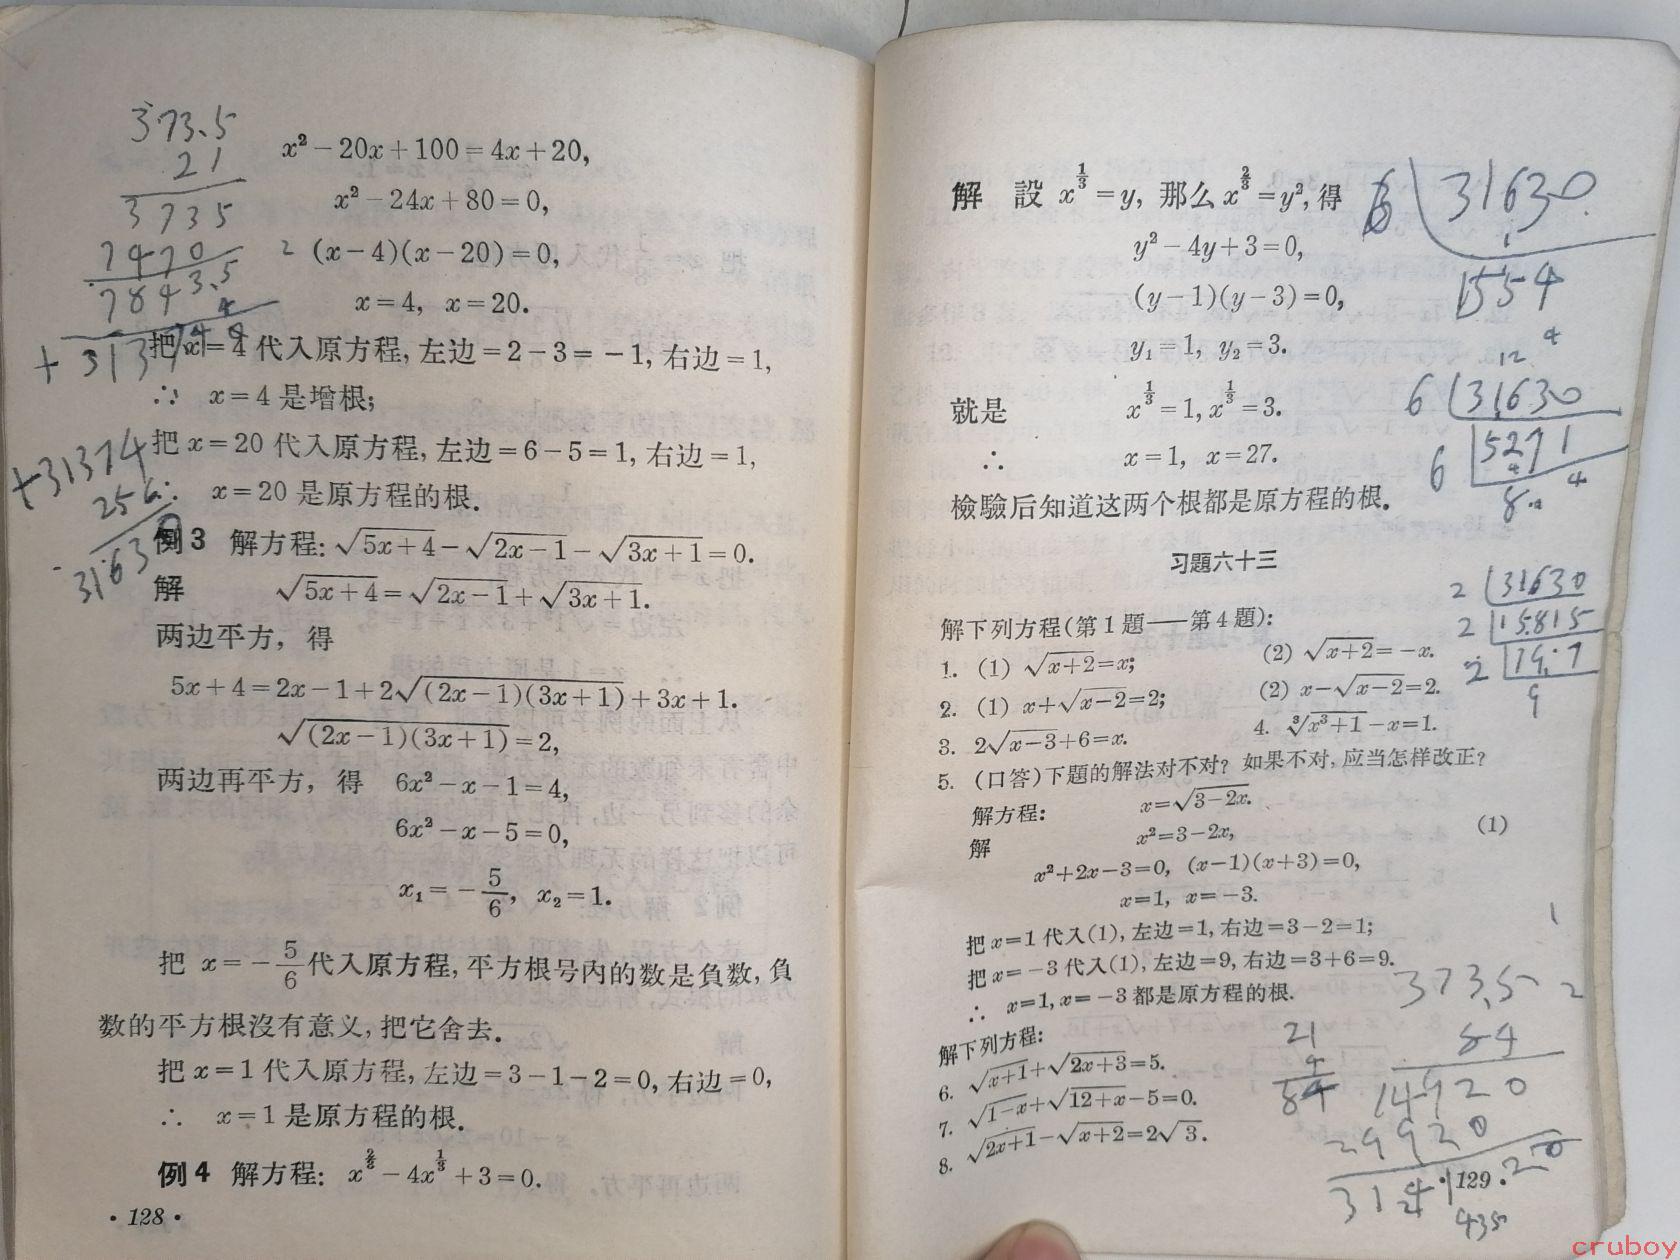 373.5
21
3735
7470
7843.5
4
x² − 20x + 100 = 4x + 20,
x² − 24x + 80 = 0,
(x − 4)(x − 20) = 0,
x = 4, x = 20.
把 x = 4 代入原方程, 左边 = 2 − 3 = −1, 右边 = 1,
∴ x = 4 是增根;
把 x = 20 代入原方程, 左边 = 6 − 5 = 1, 右边 = 1,
∴ x = 20 是原方程的根.
+31374
256
31630
例3 解方程: √(5x+4) − √(2x−1) − √(3x+1) = 0.
解 √(5x+4) = √(2x−1) + √(3x+1).
两边平方, 得
5x + 4 = 2x − 1 + 2√((2x−1)(3x+1)) + 3x + 1.
√((2x−1)(3x+1)) = 2,
两边再平方, 得 6x² − x − 1 = 4,
6x² − x − 5 = 0,
x₁ = −5/6, x₂ = 1.
把 x = −5/6 代入原方程, 平方根号內的数是負数, 負
数的平方根沒有意义, 把它舍去.
把 x = 1 代入原方程, 左边 = 3 − 1 − 2 = 0, 右边 = 0,
∴ x = 1 是原方程的根.
例4 解方程: x^(2/3) − 4x^(1/3) + 3 = 0.
· 128 ·
解 設 x^(1/3) = y, 那么 x^(2/3) = y², 得
y² − 4y + 3 = 0,
(y − 1)(y − 3) = 0,
y₁ = 1, y₂ = 3.
就是 x^(1/3) = 1, x^(1/3) = 3.
∴ x = 1, x = 27.
檢驗后知道这两个根都是原方程的根.
6 31630
1554
12
6 31630
6 5271
习題六十三
解下列方程(第1題——第4題):
1. (1) √(x+2) = x; (2) √(x+2) = −x.
2. (1) x + √(x−2) = 2; (2) x − √(x−2) = 2.
3. 2√(x−3) + 6 = x. 4. ∛(x³+1) − x = 1.
5. (口答)下題的解法对不对? 如果不对, 应当怎样改正?
解方程: x = √(3−2x).
解 x² = 3 − 2x, (1)
x² + 2x − 3 = 0, (x − 1)(x + 3) = 0,
x = 1, x = −3.
把 x = 1 代入(1), 左边 = 1, 右边 = 3 − 2 = 1;
把 x = −3 代入(1), 左边 = 9, 右边 = 3 + 6 = 9.
∴ x = 1, x = −3 都是原方程的根.
解下列方程:
6. √(x+1) + √(2x+3) = 5.
7. √(1−x) + √(12+x) − 5 = 0.
8. √(2x+1) − √(x+2) = 2√3.
2 31630
2 15815
2
9
373.5
84
14920
29920
21
4
84
435
· 129 ·
cruboy